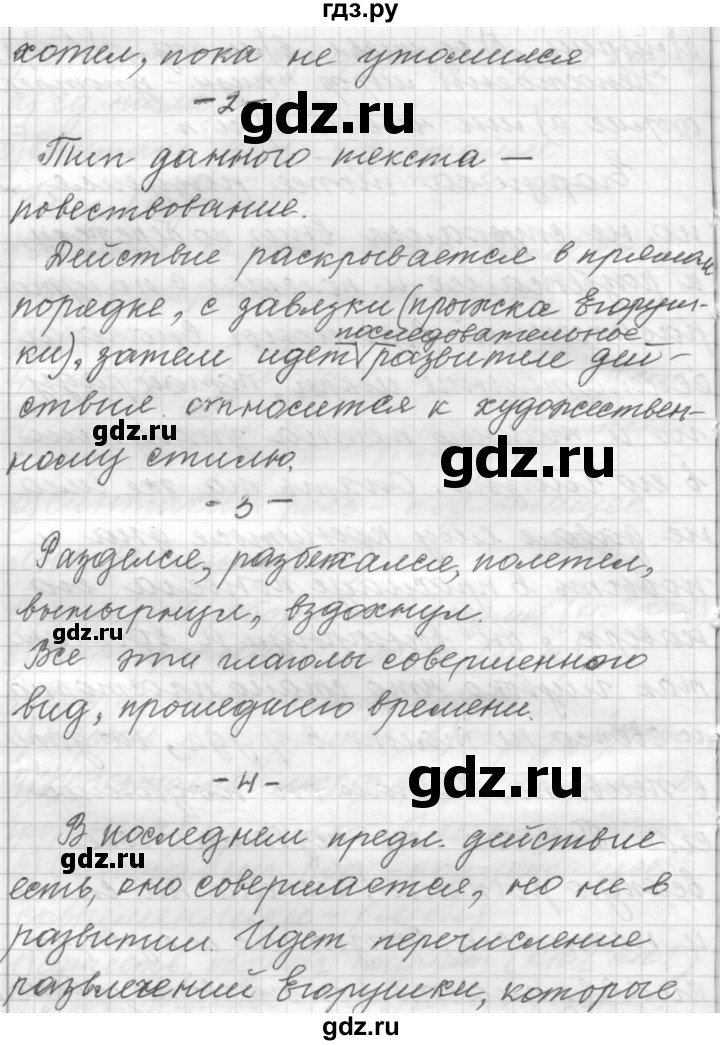 гдз.ру
хотел, пока не утомился
-2-
gdz.ru
Тип данного текста –
повествование.
Действие раскрывается в прямом
gdz.ru
порядке, с завязки (прыжка Егоруш-
последовательное
ки), затем идет развитие дей-
ствия. относится к художествен-
gdz.ru
ному стилю.
gdz.ru
- 3 -
Разделся, разбежался, полетел,
вынырнул, вздохнул.
gdz.ru
Все эти глаголы совершенного
вид, прошедшего времени.
-4-
gdz.ru
В последнем предл. действие
gdz.ru
есть, оно совершается, но не в
развитии. Идет перечисление
развлечений Егорушки, которые
gdz.ru